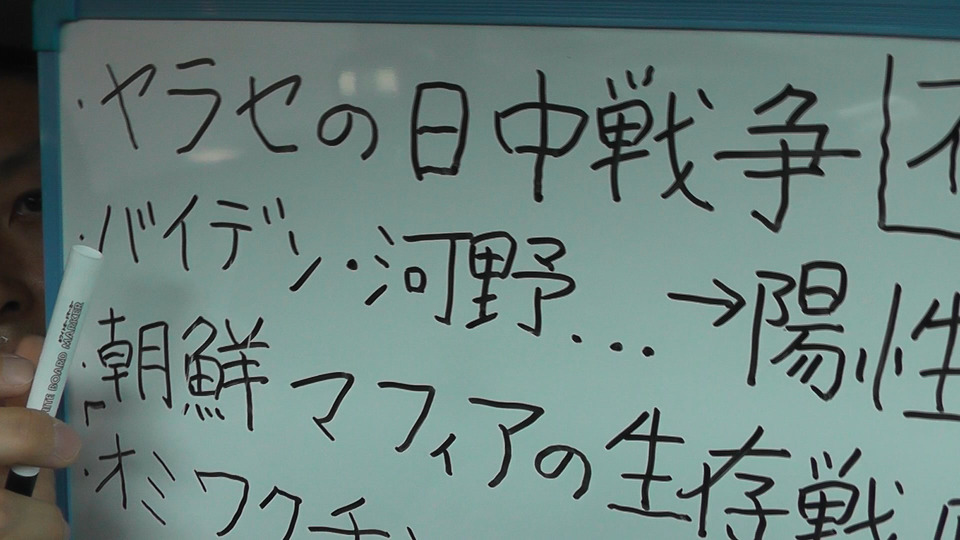 ・ヤラセの日中戦争
・バイデン・河野... →陽性
・朝鮮マフィアの生存戦
・オミワクチ
WHITE BOARD MARKER